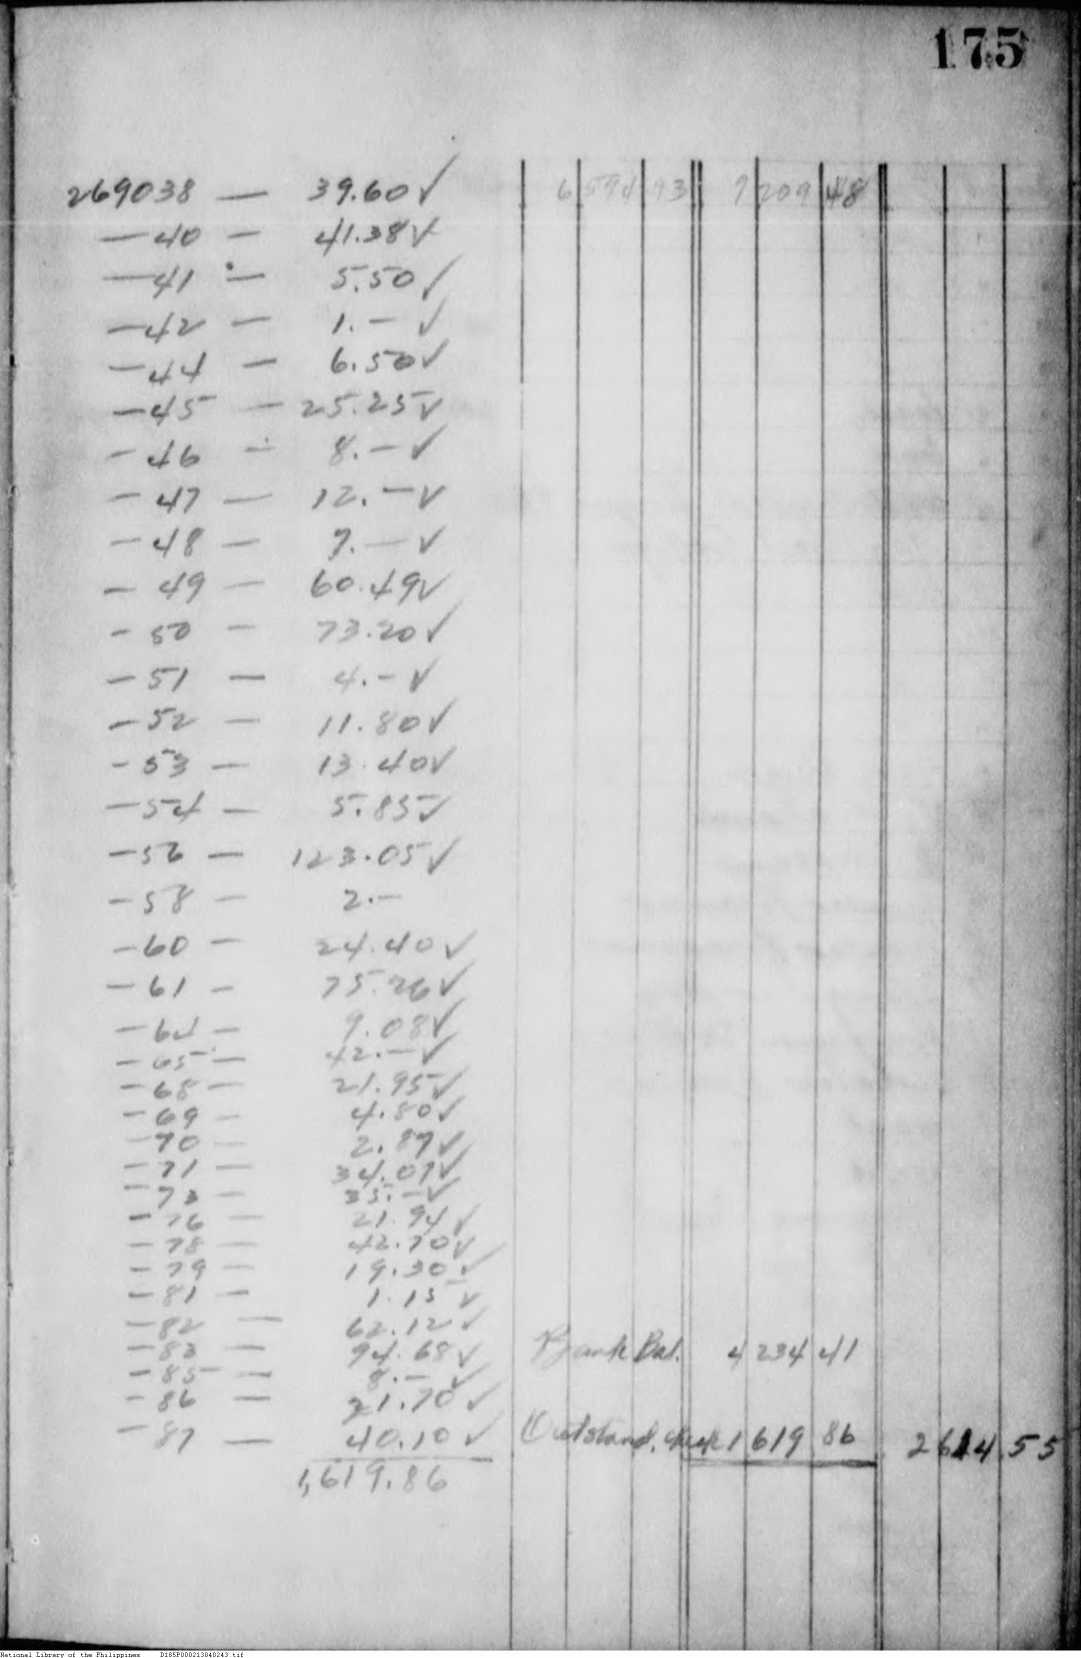 175
269038 — 39.60 ✓ 6 594 93 7 209 48
— 40 — 41.38 ✓
— 41 — 5.50 ✓
— 42 — 1.— ✓
— 44 — 6.50 ✓
— 45 — 25.25 ✓
— 46 — 8.— ✓
— 47 — 12.— ✓
— 48 — 7.— ✓
— 49 — 60.49 ✓
— 50 — 73.20 ✓
— 51 — 4.— ✓
— 52 — 11.80 ✓
— 53 — 13.40 ✓
— 54 — 5.85 ✓
— 56 — 123.05 ✓
— 58 — 2.—
— 60 — 24.40 ✓
— 61 — 75.26 ✓
— 64 — 9.08 ✓
— 65 — 42.— ✓
— 68 — 21.95 ✓
— 69 — 4.80 ✓
— 70 — 2.87 ✓
— 71 — 34.07 ✓
— 73 — 35.— ✓
— 76 — 21.94 ✓
— 78 — 42.70 ✓
— 79 — 19.30 ✓
— 81 — 1.15 ✓
— 82 — 62.12 ✓
— 83 — 94.68 ✓ Bank Bal. 4 234 41
— 85 — 8.— ✓
— 86 — 21.70 ✓
— 87 — 40.10 ✓ Outstand. check 1 619 86 2614.55
1,619.86
National Library of the Philippines D185P000213840243.tif